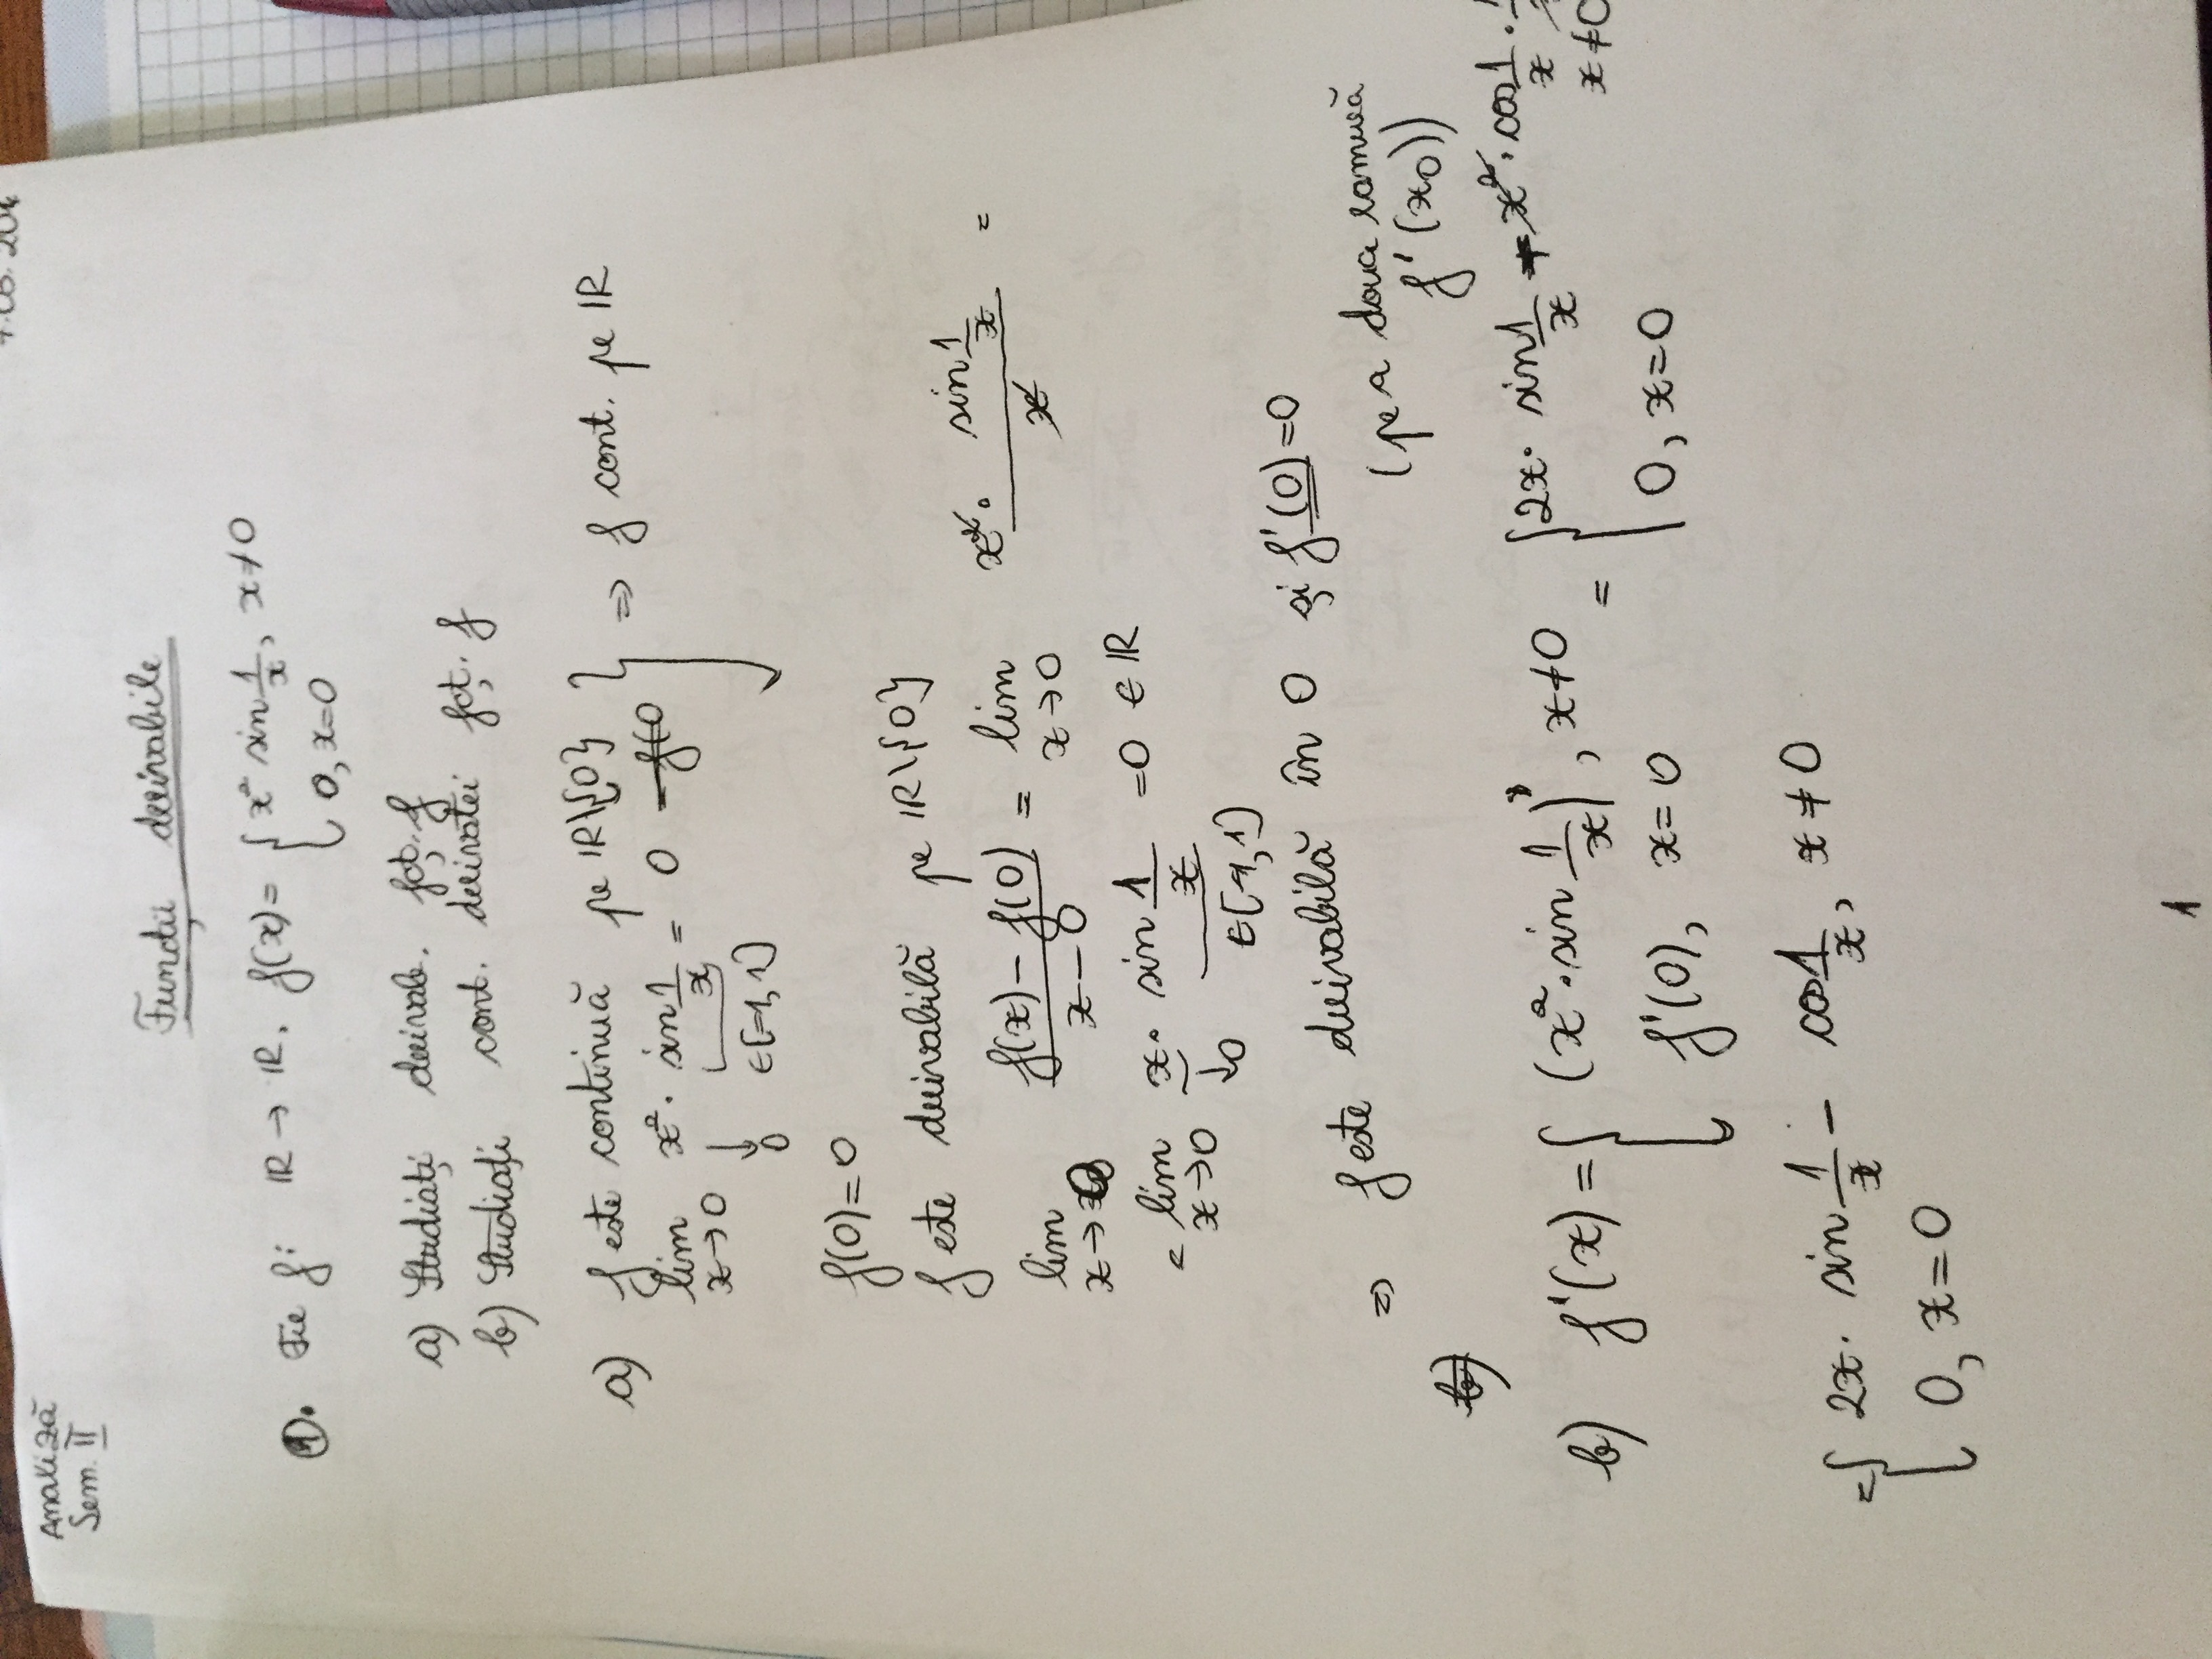 Analiză
Sem. II
Funcții derivabile
1. Fie f: ℝ → ℝ. f(x) = { x² sin 1/x, x≠0
0, x=0
a) Studiați derivab. fcț. f
b) Studiați cont. derivatei fcț. f
a) f este continuă pe ℝ\{0} } ⇒ f cont. pe ℝ
lim x→0 x² · sin 1/x = 0
↓ 0 ∈[-1,1]
f(0)=0
f este derivabilă pe ℝ\{0}
lim x→0 f(x)-f(0) / x-0 = lim x→0 x² · sin 1/x / x =
= lim x→0 x · sin 1/x = 0 ∈ ℝ
↓0 ∈[-1,1]
⇒ f este derivabilă în 0 și f'(0)=0
(pe a doua ramură
f'(x0))
b)
b) f'(x) = { (x² · sin 1/x)', x≠0 = { 2x · sin 1/x - x² · cos 1/x ·
x≠0
f'(0), x=0 0, x=0
= { 2x · sin 1/x - cos 1/x, x≠0
0, x=0
1